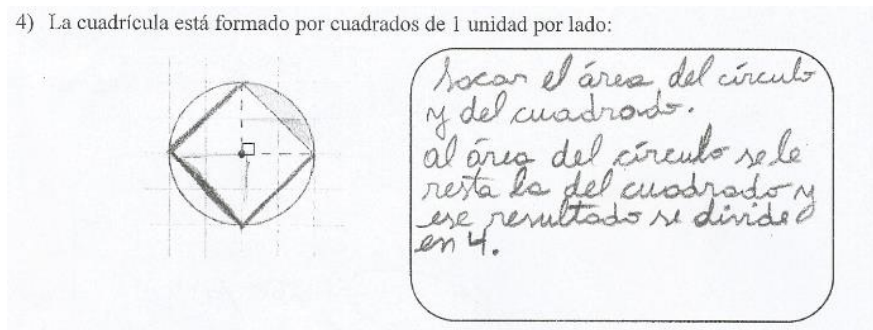 4) La cuadrícula está formado por cuadrados de 1 unidad por lado:
Sacar el área del círculo
y del cuadrado.
al área del círculo se le
resta la del cuadrado y
ese resultado se divide
en 4.